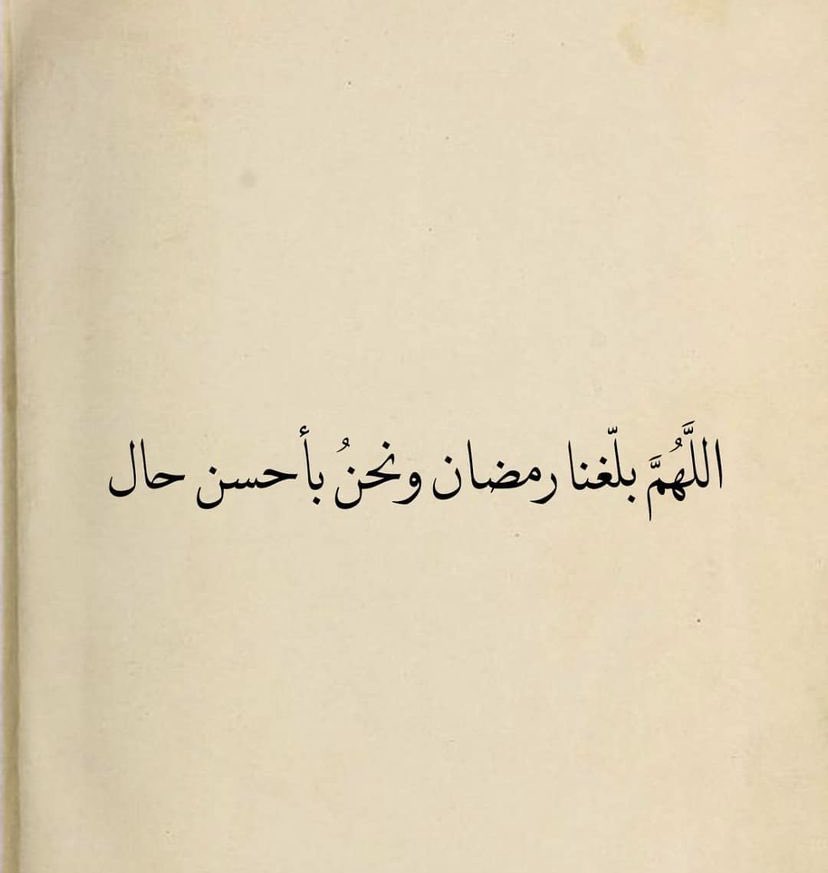 اللَّهُمَّ بلّغنا رمضان ونحنُ بأحسن حال